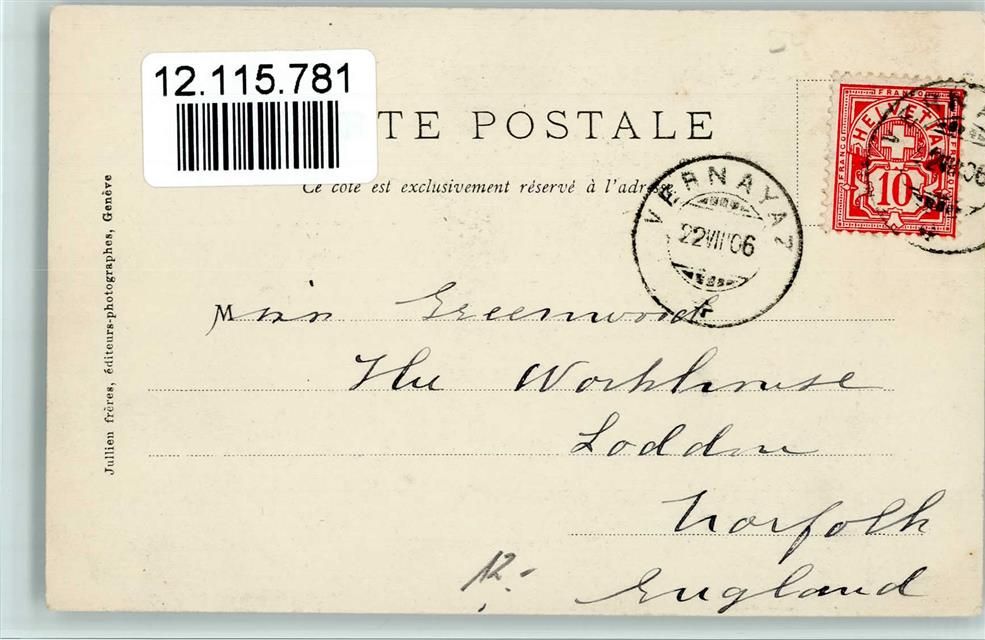 12.115.781
TE POSTALE
Ce côté est exclusivement réservé à l'adresse
FRANCO
HELVETIA
FRANCO
FRANCO
10
VERNAYAZ
22 VII 06
Miss Greenwood
The Workhouse
Loddon
Norfolk
England
12.-
Jullien frères, éditeurs-photographes, Genève